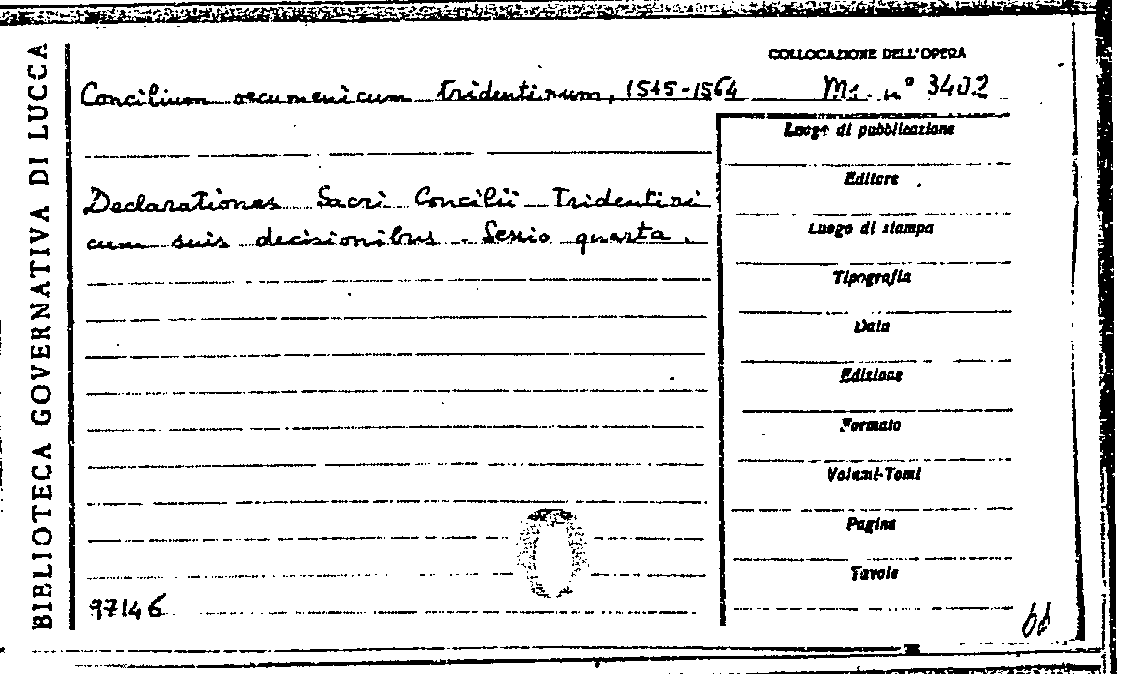 BIBLIOTECA GOVERNATIVA DI LUCCA
COLLOCAZIONE DELL'OPERA
Concilium oecumenicum tridentinum, 1545-1564
Ms. n° 3402
Declarationes Sacri Concilii Tridentini
cum suis decisionibus. Sessio quarta.
Luogo di pubblicazione
Editore
Luogo di stampa
Tipografia
Data
Edizione
Formato
Volumi-Tomi
Pagine
Tavole
97146